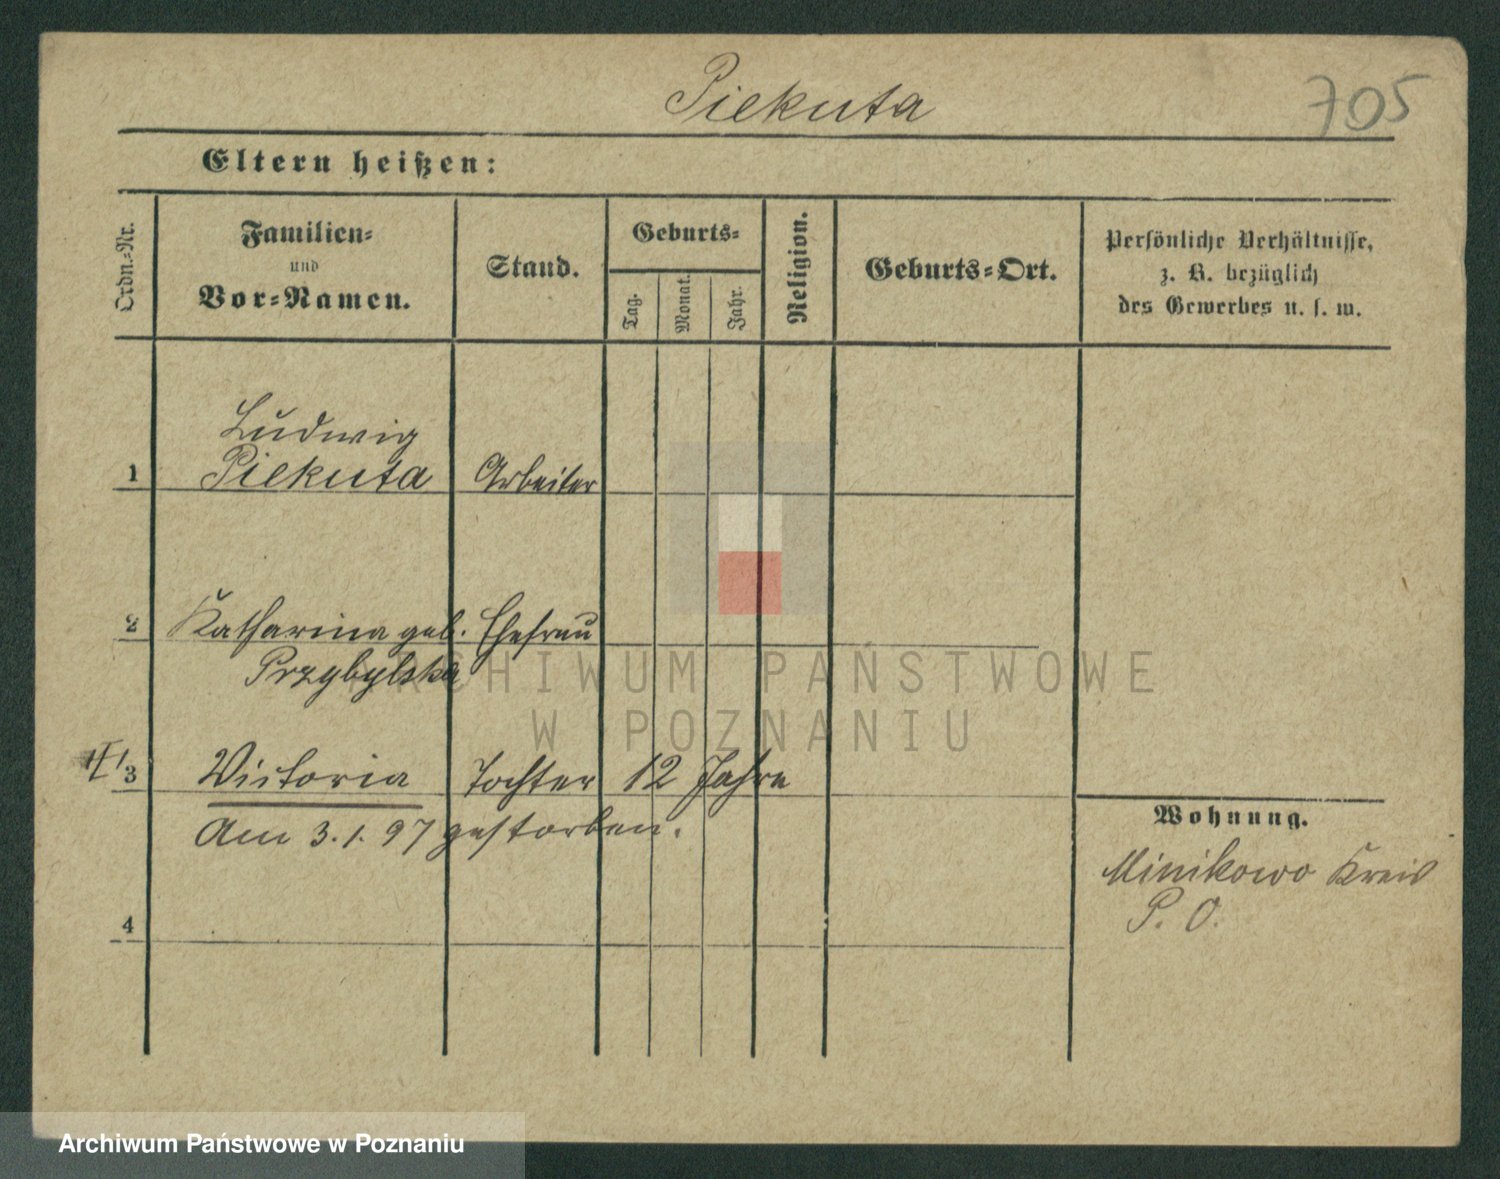 Piekuta
705
Eltern heißen:
Ordn.-Nr.
Familien-
und
Vor-Namen.
Stand.
Geburts-
Tag.
Monat.
Jahr.
Religion.
Geburts-Ort.
Persönliche Verhältnisse,
z. B. bezüglich
des Gewerbes u. s. w.
Ludwig
1 Piekuta Arbeiter
2 Katharina geb. Ehefrau
Przybylska
ARCHIWUM PAŃSTWOWE
W POZNANIU
3 Victoria Tochter 12 Jahre
Am 3.1.97 gestorben.
4
Wohnung.
Minikowo Kreis
P. O.
Archiwum Państwowe w Poznaniu